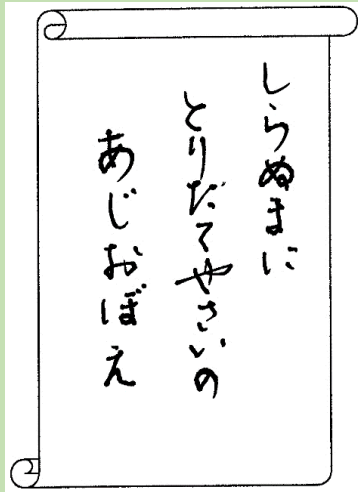 しらぬまに
とりだてやさいの
あじおぼえ